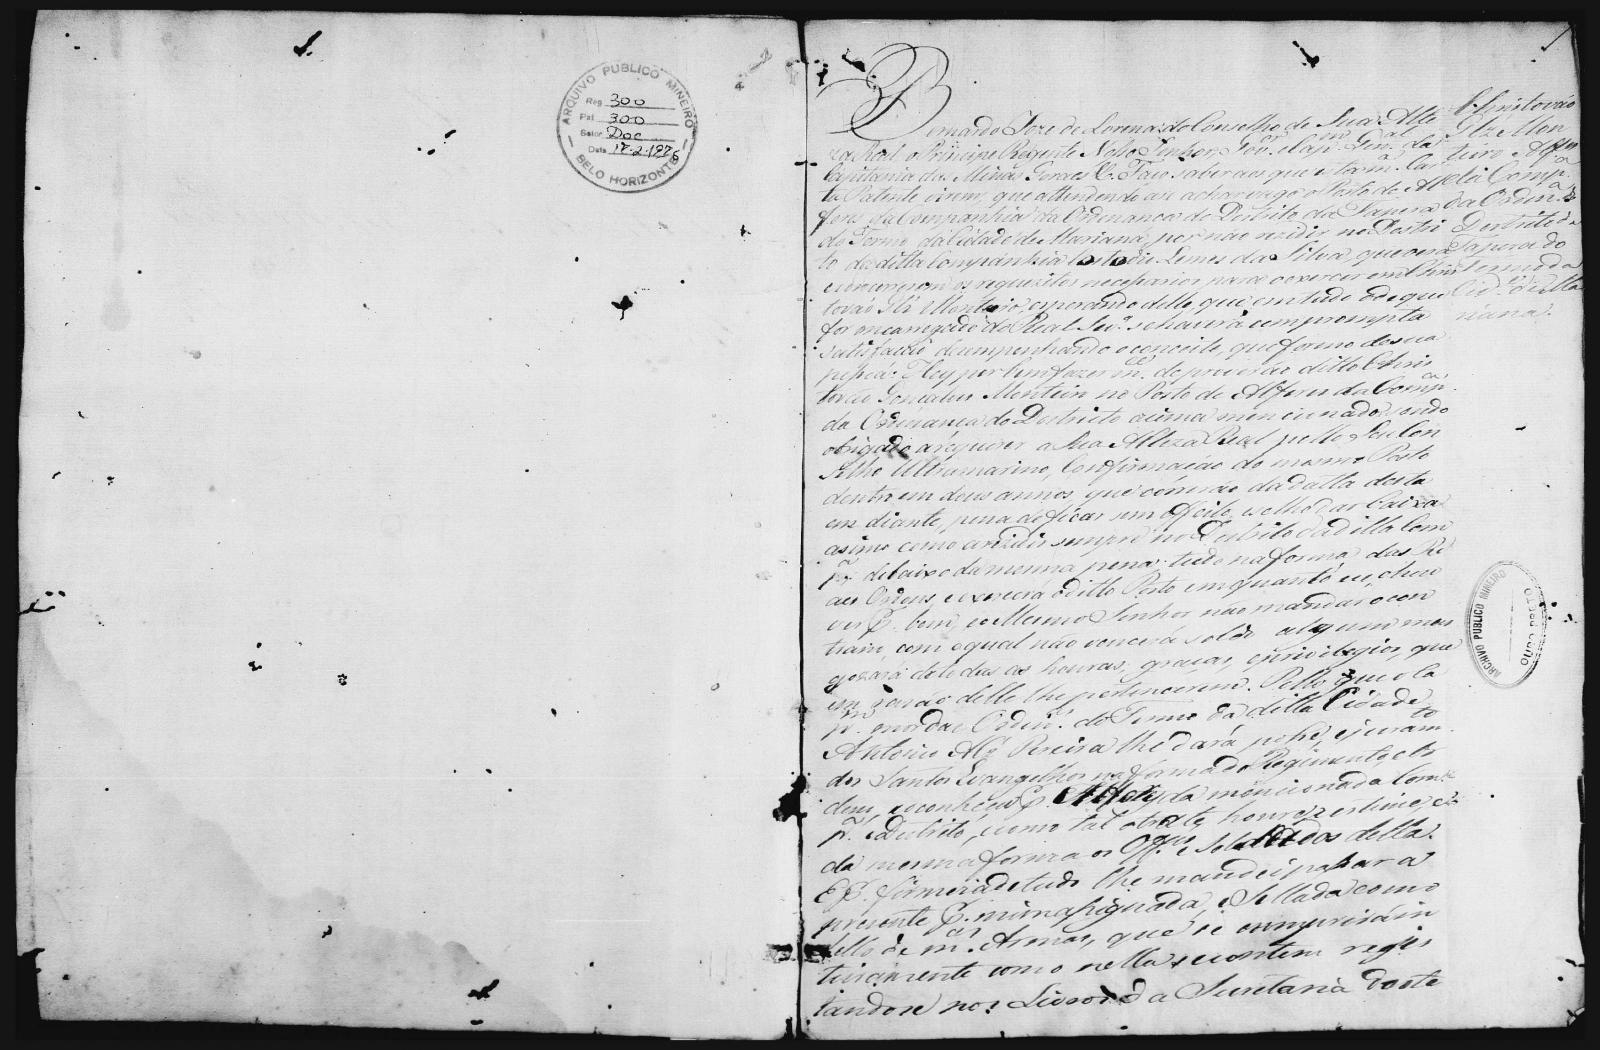 ARQUIVO PUBLICO MINEIRO
Reg 300
Pat 300
Setor Doc
Data 17-2-1978
BELO HORIZONTE
1
Bernardo Joze de Lorena do Conselho de Sua Alte
za Real o Principe Regente Nosso Senhor, Gov.or e Cap.m Gen.al da
Capitania das Minas Geraes &.ª Faço saber aos que esta m.ª Car
ta Patente virem, que attendendo a se achar vago o Posto de Al
feres da Companhia da Ordenança do Destrito da Tapera
do Termo da Cidade de Marianna, por não rezidir no Destri
to da ditta Companhia Lemes da Silva, que vera
concorrerem os requizitos necessarios para o exercer em Chris
tovão Glz Monteiro, esperando delle que em tudo o de que
for encarregado do Real Ser.º se haverá com prompta
satisfação desempenhando o conceito, que formo de sua
pessoa: Hey por bem fazer m.ce de prover ao ditto Chris
tovão Gonçalves Monteiro no Posto de Alferes da Comp.ª
da Ordenança do Destricto acima mencionado, sendo
obrigado a requerer a Sua Alteza Real pello Seu Con
selho Ultramarino, Confirmação do mesmo Posto
dentro em dous annos que correrão da datta desta
em diante, pena de ficar sem effeito, e selhe dar baixa
asim como a rezidir sempre no Destrito da ditta Com
p.ª debaixo da mesma pena: tudo na forma das Re
aes Ordens, e exercerá o ditto Posto emquanto eu, o hou
ver p.r bem, e o Mesmo Senhor não mandar o con
trario, com o qual não vencerá soldo algum mas
gozará de todas as honras, graças, e privilegios, que
em razão delle lhe pertencerem. Pello que o Ca
p.m mor das Orden.ças do Termo da ditta Cidade
Antonio Alz Pereira lhe dará posse, e juram.to
dos Santos Evangelhos na forma do Regimento, e Or
dens, e conheça p.r Alferes da mencionada Com
p.ª e Destrito, e como tal o trate, honre, e estime, e
da mesma forma os Off.es e Soldados della.
E p.r firmeza de tudo lhe mandei passar a
prezente p.r mim assignada, e Sellada com o
sello de m.as Armas, que se cumprirá in
teiramente como nella se contem regis
tandose nos Livros da Secretaria deste
Christovão
Glz Mon
teiro Alferes
da Comp.ª
da Orden.ª
Destrito da
Tapera do
Termo da
Cid.e de Ma
rianna
ARCHIVO PUBLICO MINEIRO
OURO PRETO